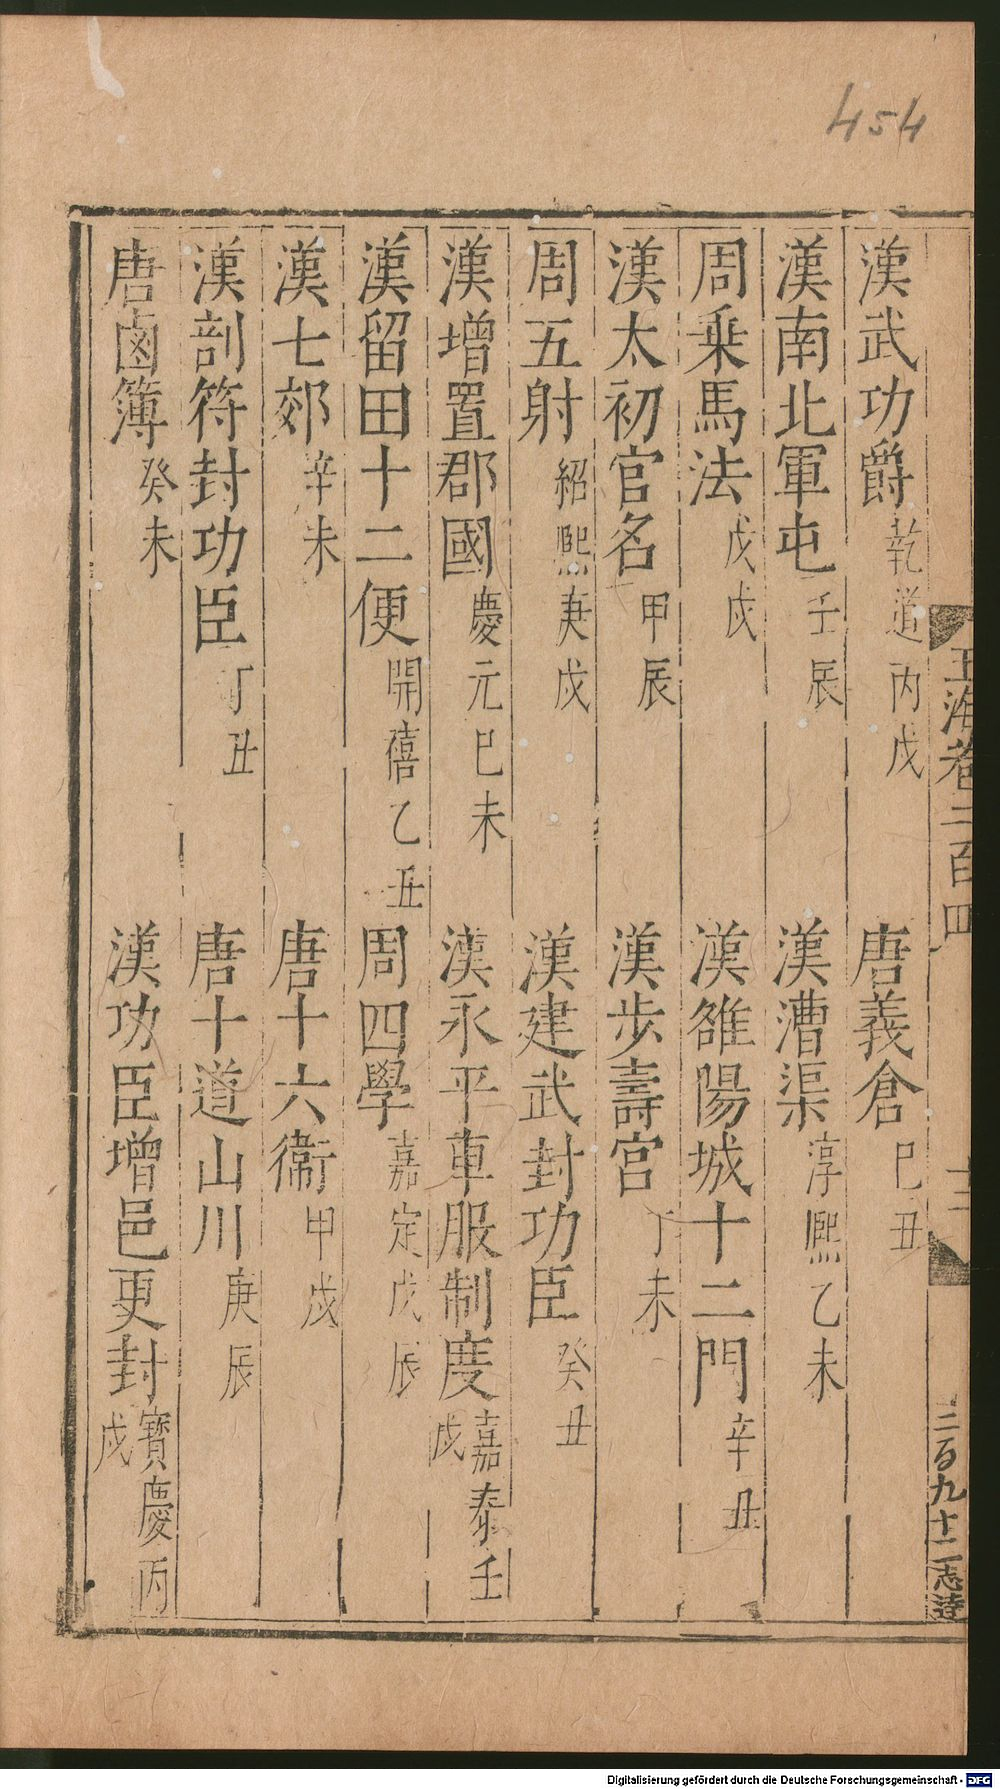 454
漢武功爵 乾道丙戌 唐義倉 巳丑
漢南北軍屯 壬辰 漢漕渠 淳熙乙未
周乗馬法 戊戌 漢雒陽城十二門 辛丑
漢太初官名 甲辰 漢步壽宮 丁未
周五射 紹熙庚戌 漢建武封功臣 癸丑
漢增置郡國 慶元巳未 漢永平車服制度 嘉泰壬戌
漢留田十二便 開禧乙丑 周四學 嘉定戊辰
漢七郊 辛未 唐十六衞 甲戌
漢剖符封功臣 丁丑 唐十道山川 庚辰
唐鹵簿 癸未 漢功臣增邑更封 寶慶丙戌
玉海卷二百四 十二 二百九十二 志
Digitalisierung gefördert durch die Deutsche Forschungsgemeinschaft - DFG